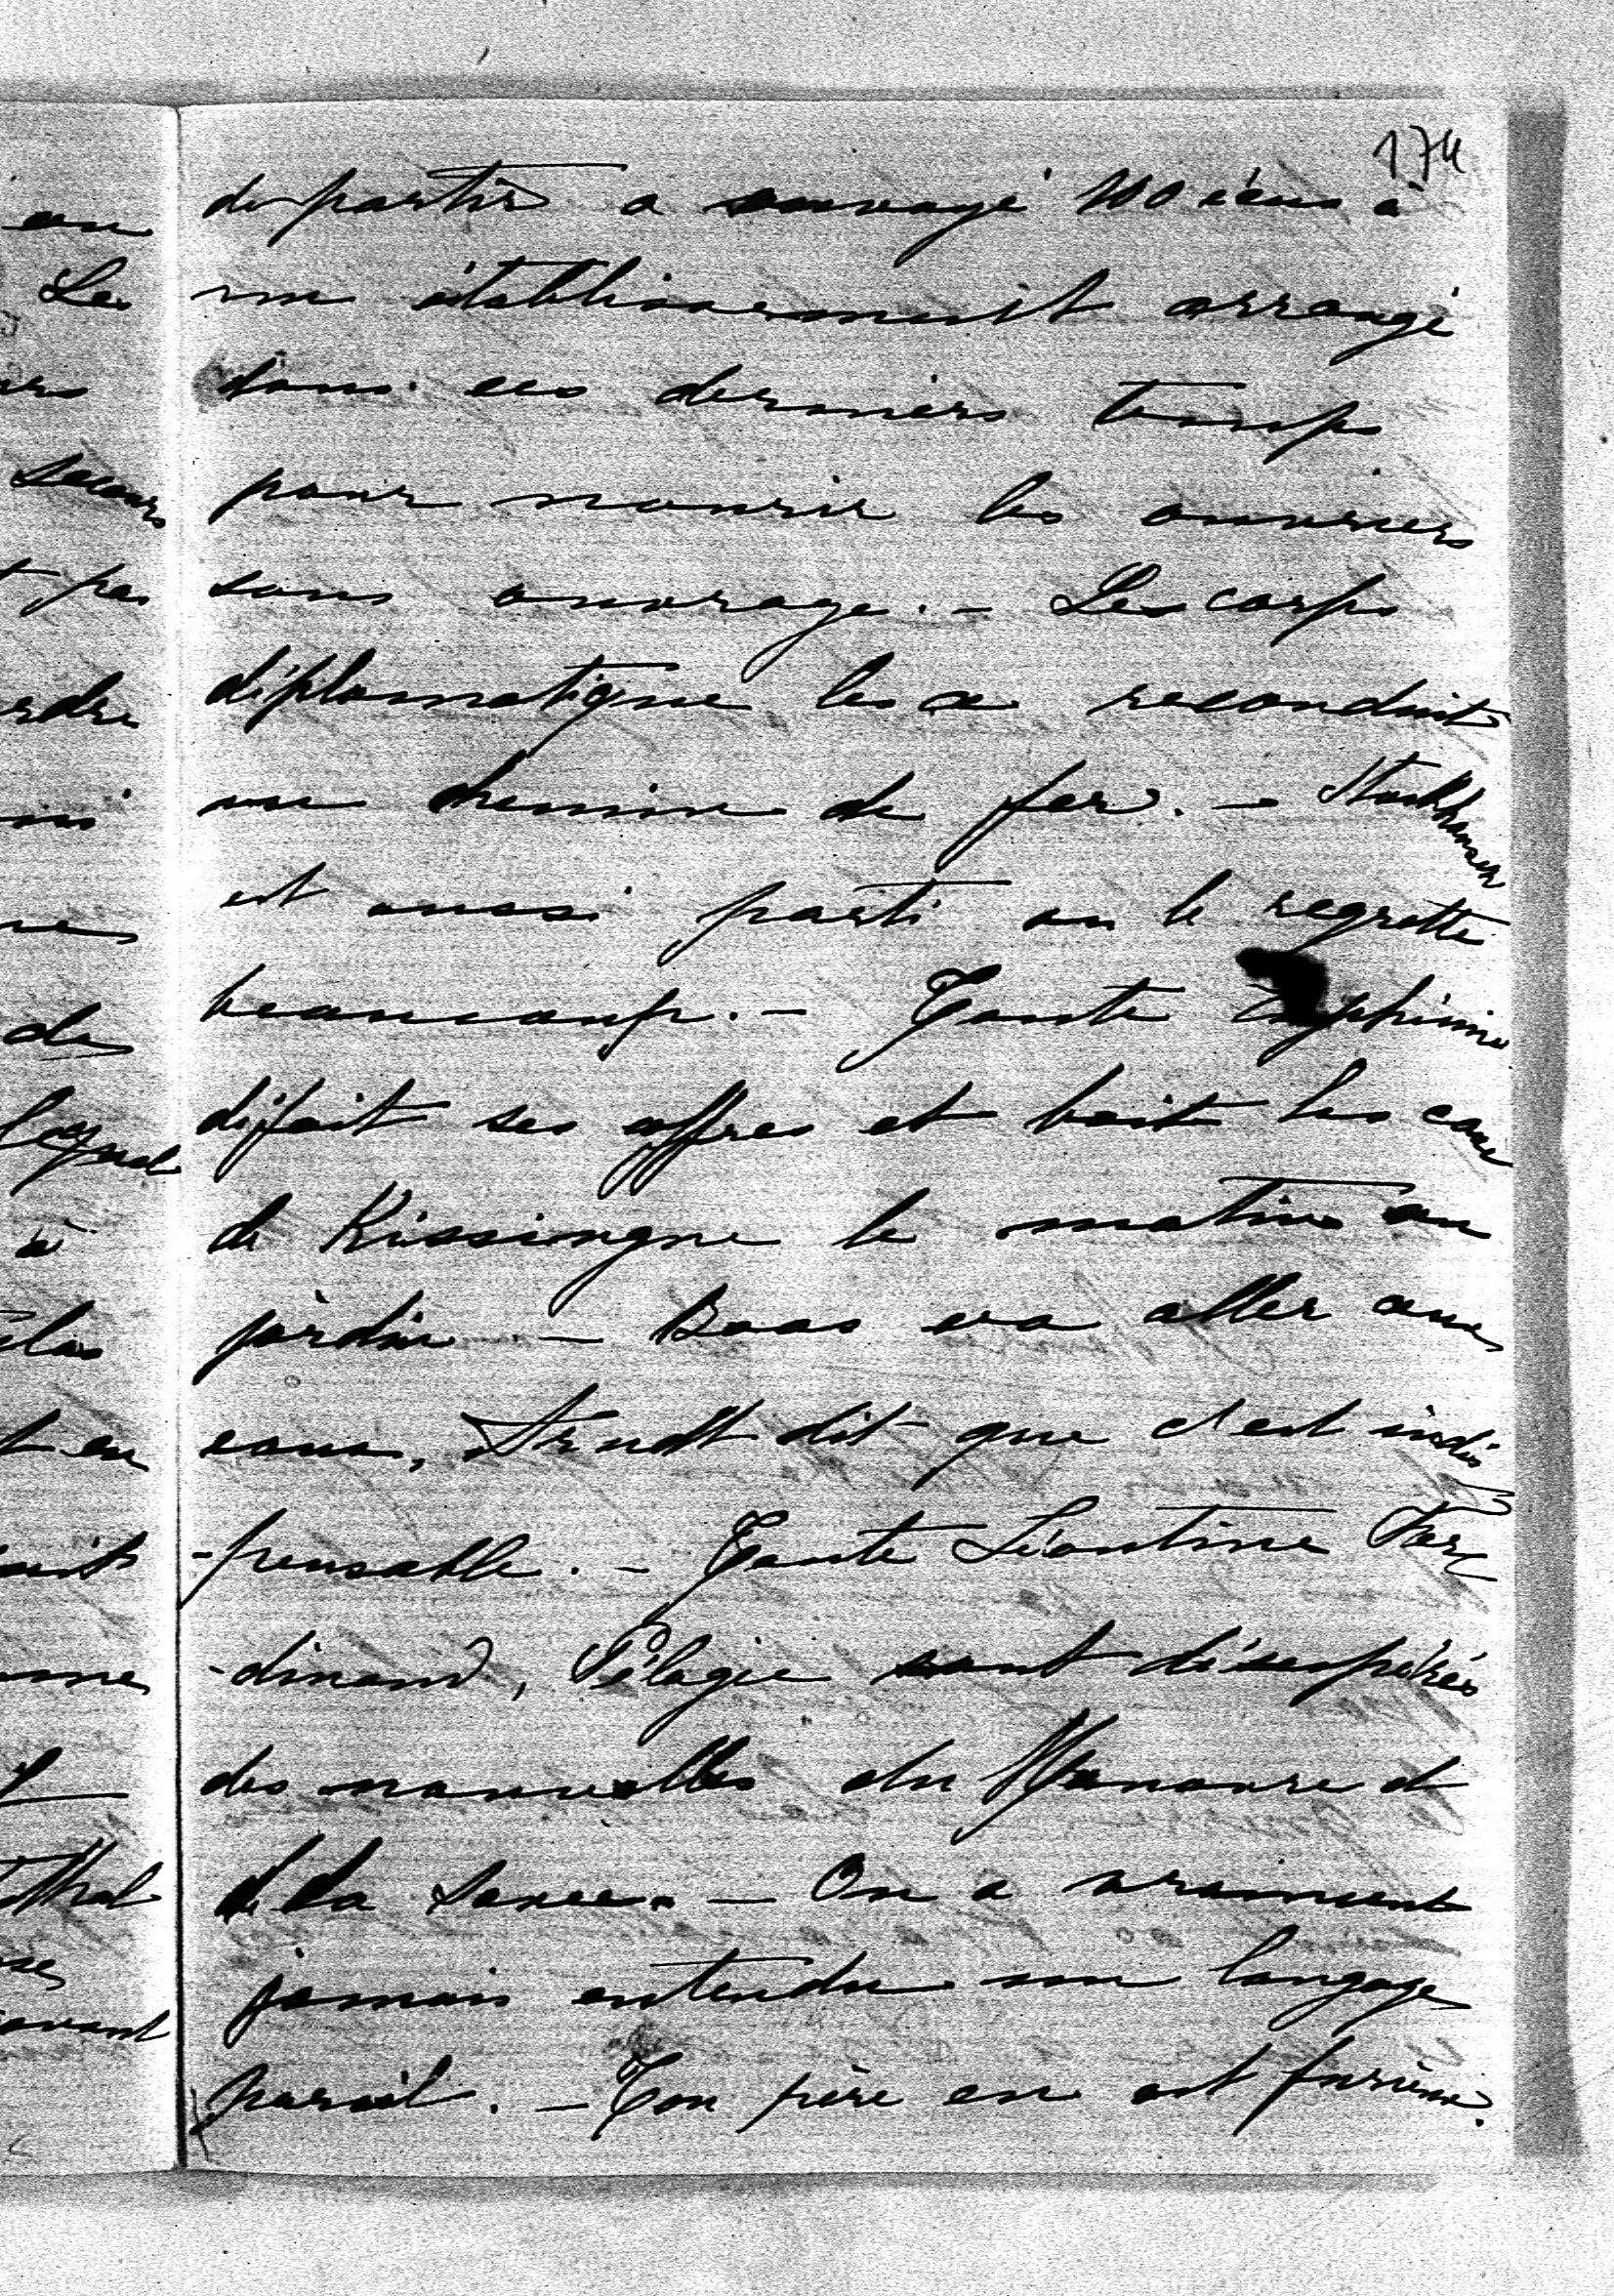 174
de partir a envoyé 100 écus à
un établissement arrangé
dans ces derniers temps
pour nourrir les ouvriers
sans ouvrage. – Le corps
diplomatique les a reconduit
au chemin de fer. – Stockhausen
est aussi parti on le regrette
beaucoup. – Tante
défait ses coffres et boit les eaux
de Kissingne le matin au
jardin – Baas va aller aux
eaux, Arndt dit que c'est indis
-pensable. – Tante Léontine Fer
-dinand, Pélagie sont désespérés
des nouvelles du Hanovre et
de la Saxe. – On a vraiment
jamais entendu un langage
pareil. – Ton père en est furieux.